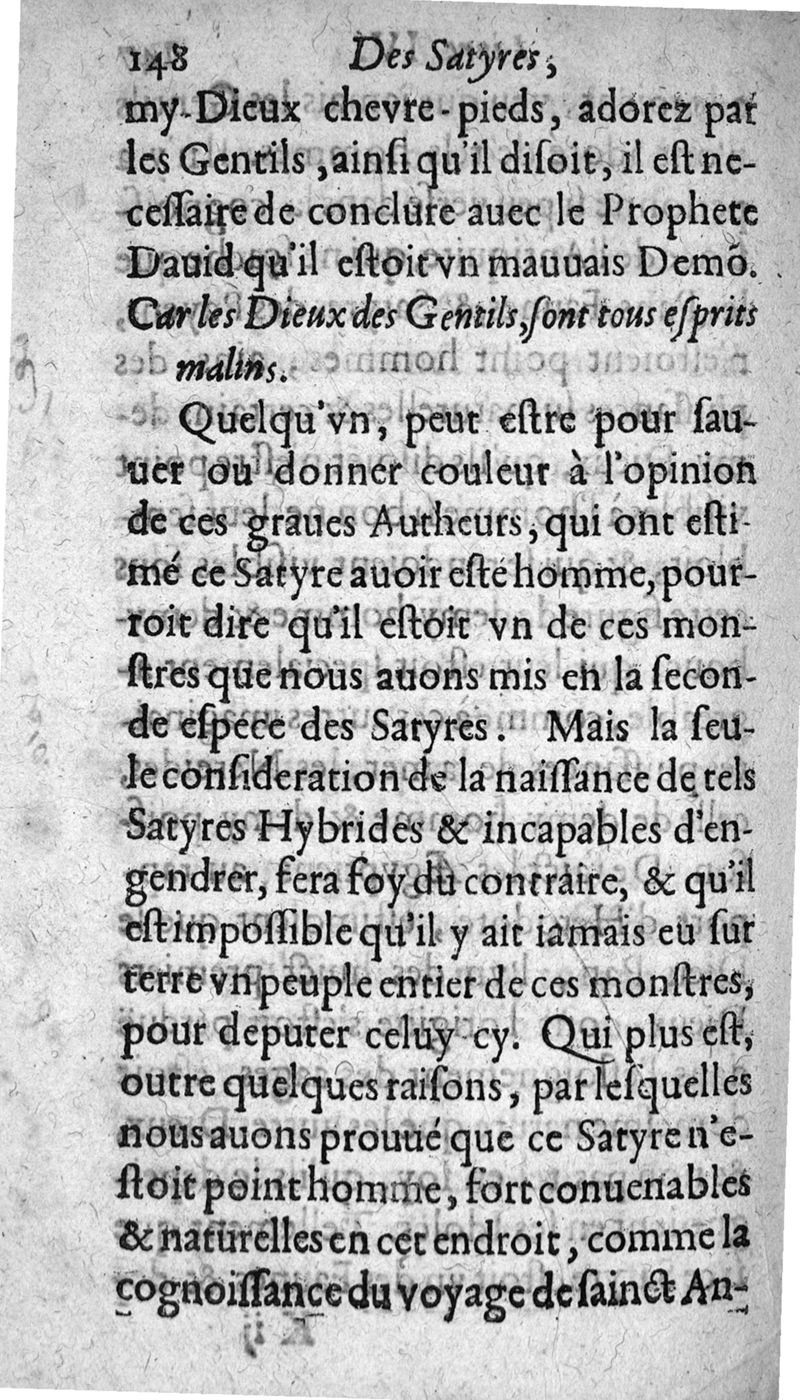 148 Des Satyres,
my-Dieux chevre-pieds, adorez par
les Gentils, ainſi qu'il diſoit, il eſt ne-
ceſſaire de conclure auec le Prophete
Dauid qu'il eſtoit vn mauuais Demō.
Car les Dieux des Gentils, ſont tous eſprits
malins.
Quelqu'vn, peut eſtre pour ſau-
uer ou donner couleur à l'opinion
de ces graues Autheurs, qui ont eſti-
mé ce Satyre auoir eſté homme, pour-
roit dire qu'il eſtoit vn de ces mon-
ſtres que nous auons mis en la ſecon-
de eſpece des Satyres. Mais la ſeu-
le conſideration de la naiſſance de tels
Satyres Hybrides & incapables d'en-
gendrer, fera foy du contraire, & qu'il
eſt impoſſible qu'il y ait iamais eu ſur
terre vn peuple entier de ces monſtres,
pour deputer celuy cy. Qui plus eſt,
outre quelques raiſons, par leſquelles
nous auons prouué que ce Satyre n'e-
ſtoit point homme, fort conuenables
& naturelles en cet endroit, comme la
cognoiſſance du voyage de ſainct An-